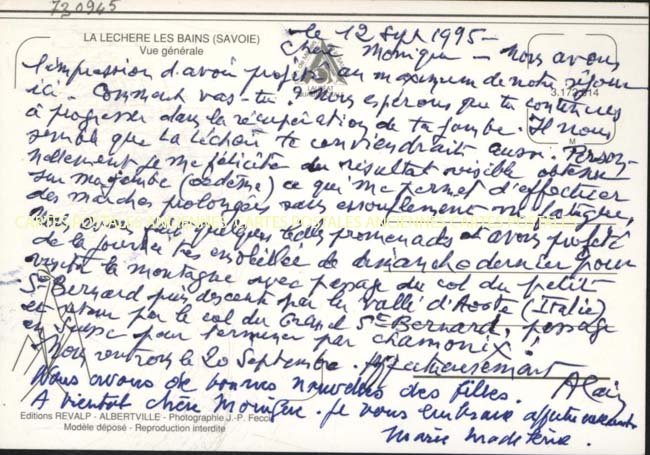 720945
LA LECHERE LES BAINS (SAVOIE)
Vue générale
3.173.014
M
le 12 Sept 1995 -
Chère Monique - Nous avons
l'impression d'avoir profité au maximum de notre séjour
ici - Comment vas-tu ? Nous espérons que tu continues
à progresser dans la récupération de ta jambe. Il nous
semble que La Léchère te conviendrait aussi. Person-
nellement je me félicite du résultat visible obtenu
sur ma jambe (oedème) ce qui me permet d'effectuer
des marches prolongées sans essoufflement ni fatigue.
CARTES POSTALES ANCIENNES CARTES POSTALES ANCIENNES CARTES POSTALES
quelques belles promenades et avons profité
de la journée très ensoleillée de dimanche dernier pour
visiter la montagne avec passage du col du petit
St Bernard puis descente par la vallée d'Aoste (Italie)
et retour par le col du Grand St Bernard, passage
en Suisse pour terminer par Chamonix !
Nous rentrons le 20 Septembre. Affectueusement
Alain
Nous avons de bonnes nouvelles des filles.
A bientôt chère Monique. Je vous embrasse affectueusement
Marie Madeleine.
Editions REVALP - ALBERTVILLE - Photographie J.-P. Feccli
Modèle déposé - Reproduction interdite